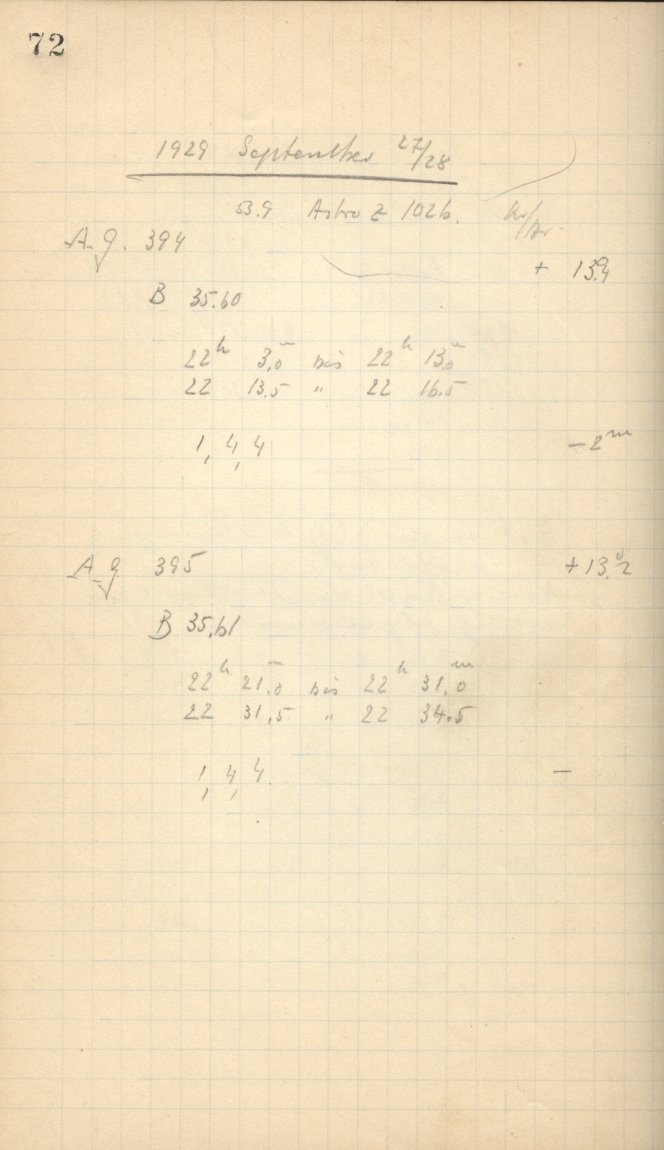 72
1929 September 27/28
53.9 Astro Z 1026.
A.g. 394
+ 13°.4
B 35.60
22h 3,0m bis 22h 13,0m
22 13.5 " 22 16.5
1, 4, 4
- 2m
A.g 395 +13.°2
B 35,61
22h 21,0m bis 22h 31,0m
22 31,5 " 22 34.5
1, 4, 4
-